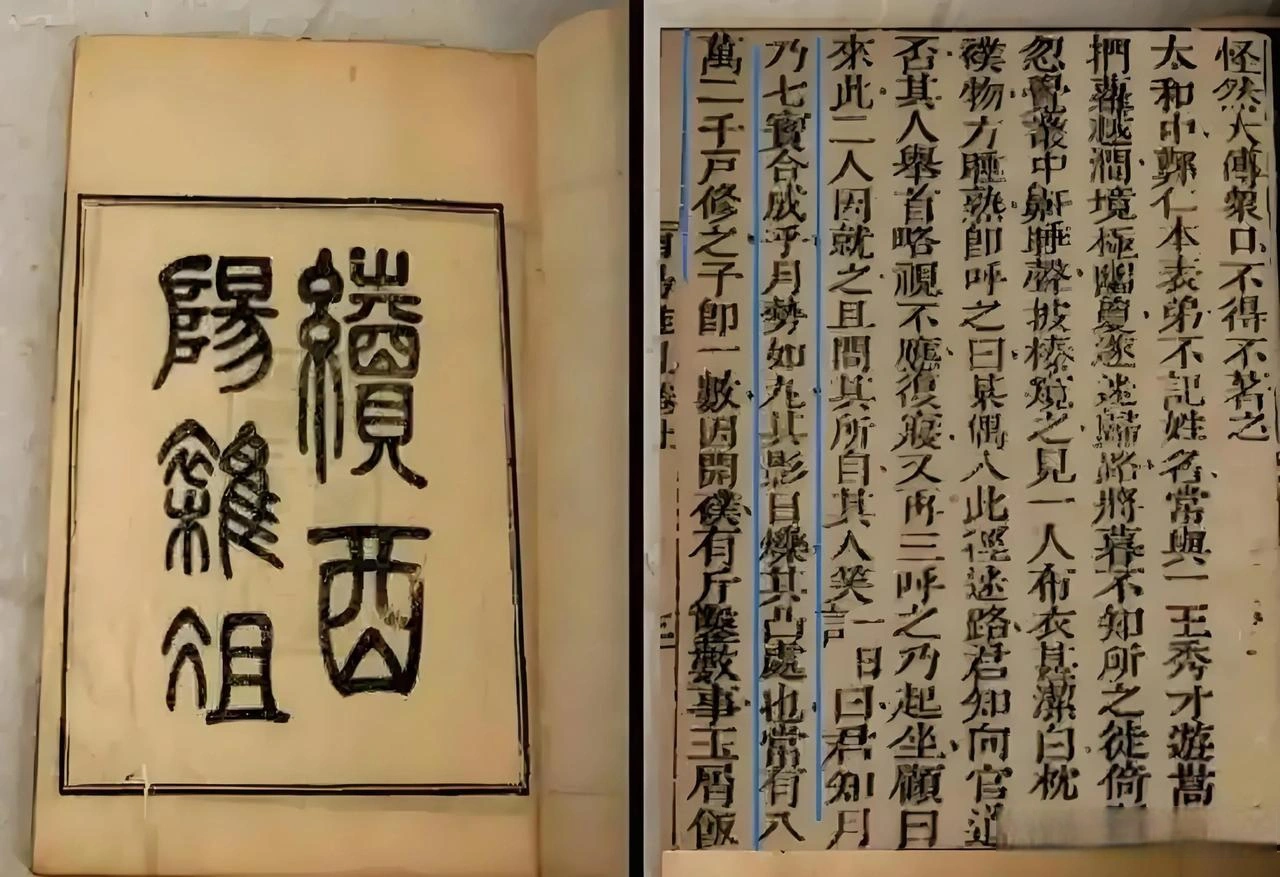 續酉
陽雜俎
怪然大傳衆口不得不著之
太和中鄭仁本表弟不記姓名常與一王秀才遊嵩
捫蘿越澗境極幽敻遂迷歸路將暮不知所之徙倚
忽覺叢中鼾睡聲披榛窺之見一人布衣甚潔白枕
襆物方睡熟即呼之曰某偶入此徑迷路君知向官道
否其人舉首略視不應復寢又再三呼之乃起坐顧曰
來此二人因就之且問其所自其人笑言一日曰君知月
乃七寳合成乎月勢如丸其影日爍其凸處也常有八
萬二千戸修之子即一數因開襆有斤鑿數事玉屑飯